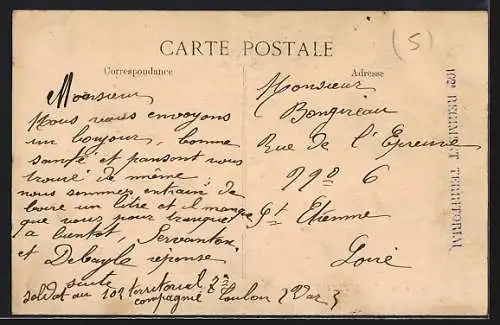 CARTE POSTALE
(5)
Correspondance
Adresse
Monsieur
Nous vous envoyons
un bonjour, bonne
santé et pansont vous
trouvé de même,
nous sommes entrain de
boire un litre et il manque
que vous pour tranquer
a bientot, Servanton
et Debayle réponse
suite
soldat au 102 territorial
compagnie Toulon Var
Monsieur
Rue de l'Epreuve
nº 6
St Etienne
Loire
102e REGIMENT TERRITORIAL